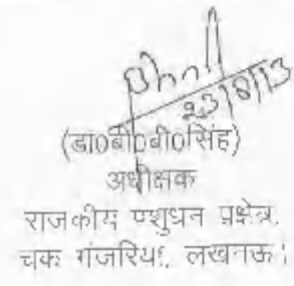 23/8/13
(डा0बी0बी0सिंह)
अधीक्षक
राजकीय पशुधन प्रक्षेत्र,
चक गंजरिया, लखनऊ।